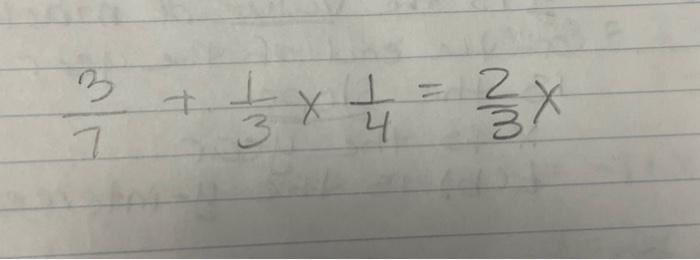 3/7 + 1/3 x 1/4 = 2/3 x